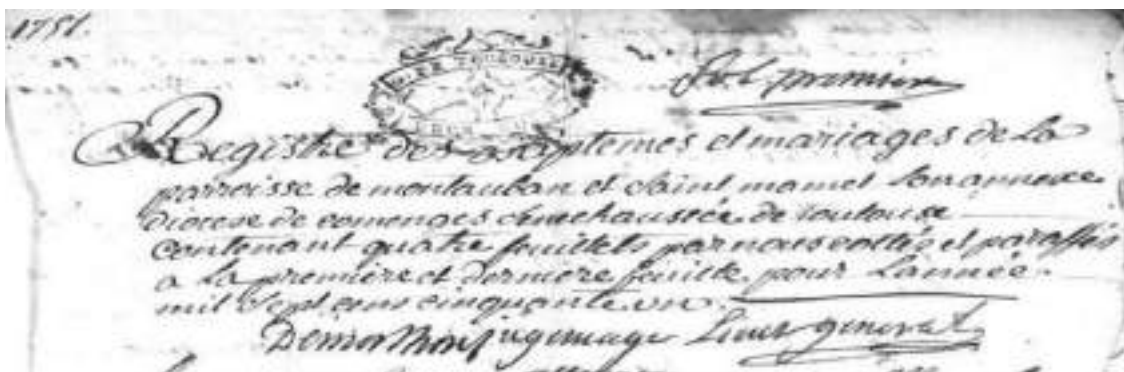 1751.
fol. premier
Registre des baptemes et mariages de La
parroisse de montauban et Saint mamet son annexe
diocese de comenges senechaussée de toulouse
contenant quatre feuillets par nous cottés et paraffés
a La premiere et derniere feuille pour Lannée
mil Sept cens cinquante un.
juge mage Lieut general